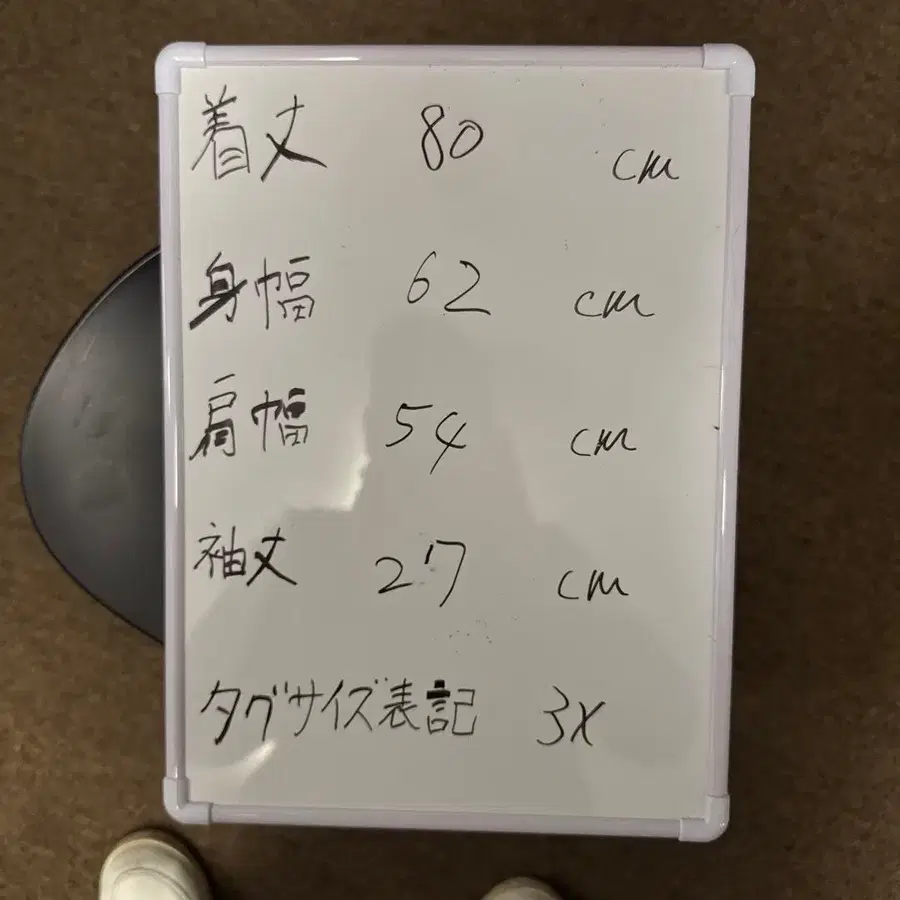 着丈 80 cm
身幅 62 cm
肩幅 54 cm
袖丈 27 cm
タグサイズ表記 3X